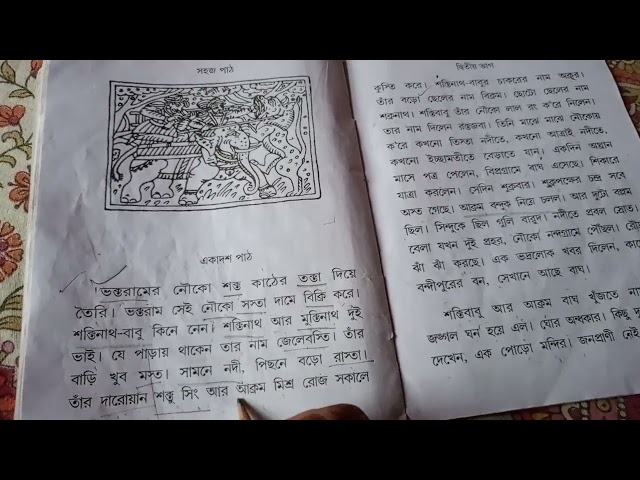 সহজ পাঠ
একাদশ পাঠ
ভক্তরামের নৌকো শক্ত কাঠের তক্তা দিয়ে
তৈরি। ভক্তরাম সেই নৌকো সস্তা দামে বিক্রি করে।
শক্তিনাথ-বাবু কিনে নেন। শক্তিনাথ আর মুক্তিনাথ দুই
ভাই। যে পাড়ায় থাকেন তার নাম জেলেবস্তি। তাঁর
বাড়ি খুব মস্ত। সামনে নদী, পিছনে বড়ো রাস্তা।
তাঁর দারোয়ান শক্তু সিং আর আক্রম মিশ্র রোজ সকালে
দ্বিতীয় ভাগ
কুস্তি করে। শক্তিনাথ-বাবুর চাকরের নাম অক্রূর।
তাঁর বড়ো ছেলের নাম বিক্রম। ছোটো ছেলের নাম
শত্রুনাথ। শক্তিবাবু তাঁর নৌকো লাল রং ক'রে নিলেন।
তার নাম দিলেন রক্তজবা। তিনি মাঝে মাঝে নৌকোয়
ক'রে কখনো তিস্তা নদীতে, কখনো আত্রাই নদীতে,
কখনো ইচ্ছামতীতে বেড়াতে যান। একদিন অঘ্রান
মাসে পত্র পেলেন, বিপ্রগ্রামে বাঘ এসেছে। শিকারে
যাত্রা করলেন। সেদিন শুক্রবার। শুক্লপক্ষের চন্দ্র সবে
অস্ত গেছে। আক্রম বন্দুক নিয়ে চলল। আর দুটো বল্লম
ছিল। সিন্দুকে ছিল গুলি বারুদ। নদীতে প্রবল স্রোত।
বেলা যখন দুই প্রহর, নৌকো নন্দগ্রামে পৌঁছল।
ঝাঁ ঝাঁ করছে। এক ভদ্রলোক খবর দিলেন,
বন্দীপুরের বন, সেখানে আছে বাঘ।
শক্তিবাবু আর আক্রম বাঘ খুঁজতে
জঙ্গল ঘন হয়ে এল। ঘোর অন্ধকার। কিছু
দেখেন, এক পোড়ো মন্দির। জনপ্রাণী নেই